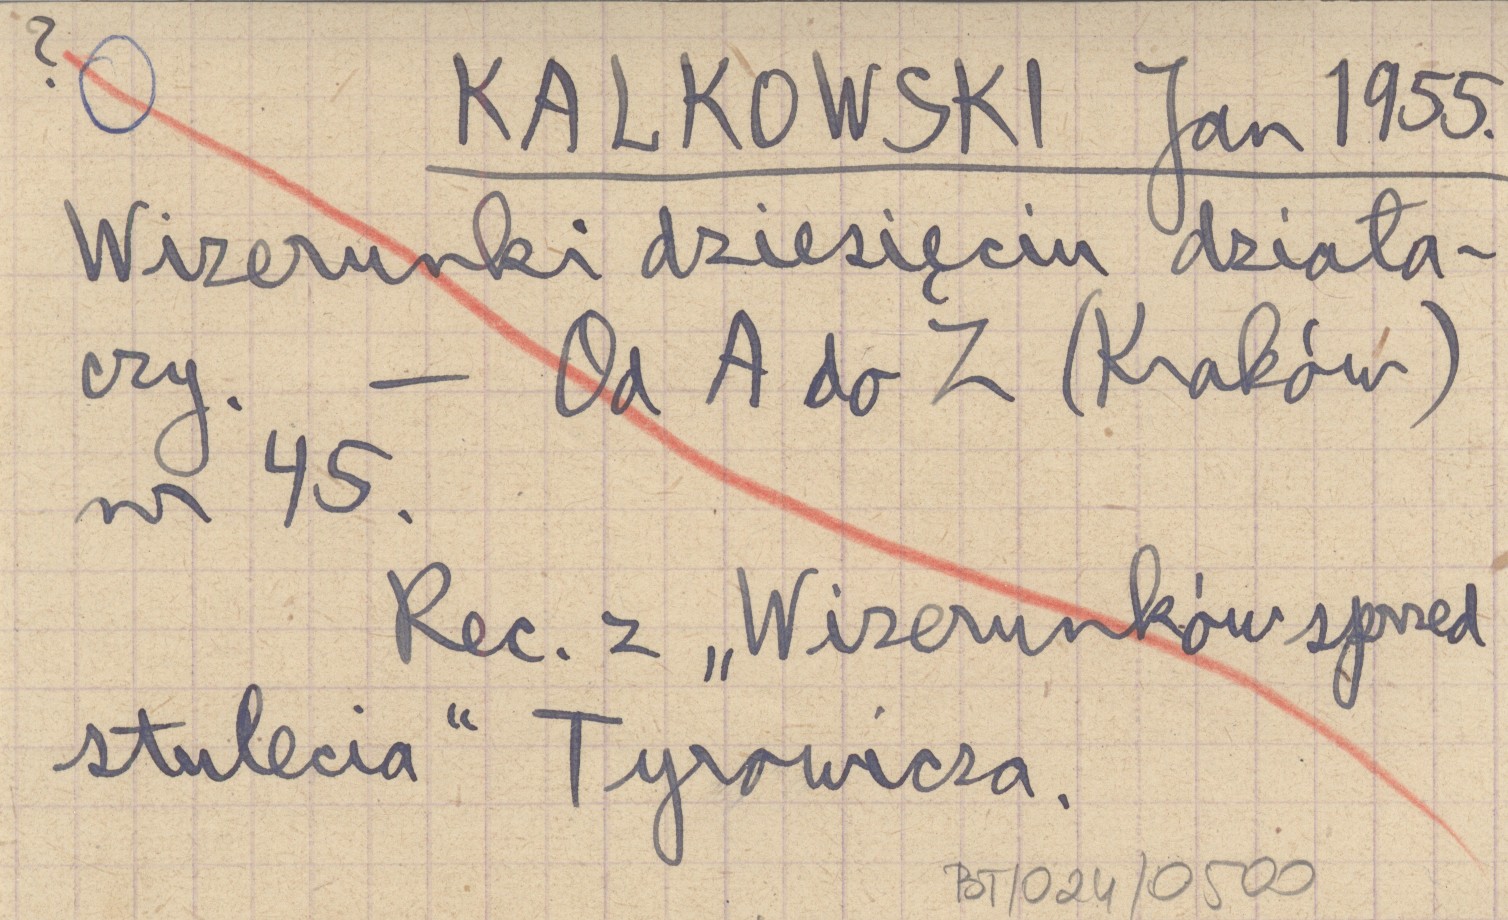 ?
KALKOWSKI Jan 1955.
Wizerunki dziesięciu działa-
czy. — Od A do Z (Kraków)
nr 45.
Rec. z „Wizerunków sprzed
stulecia“ Tyrowicza.
BT/024/0500